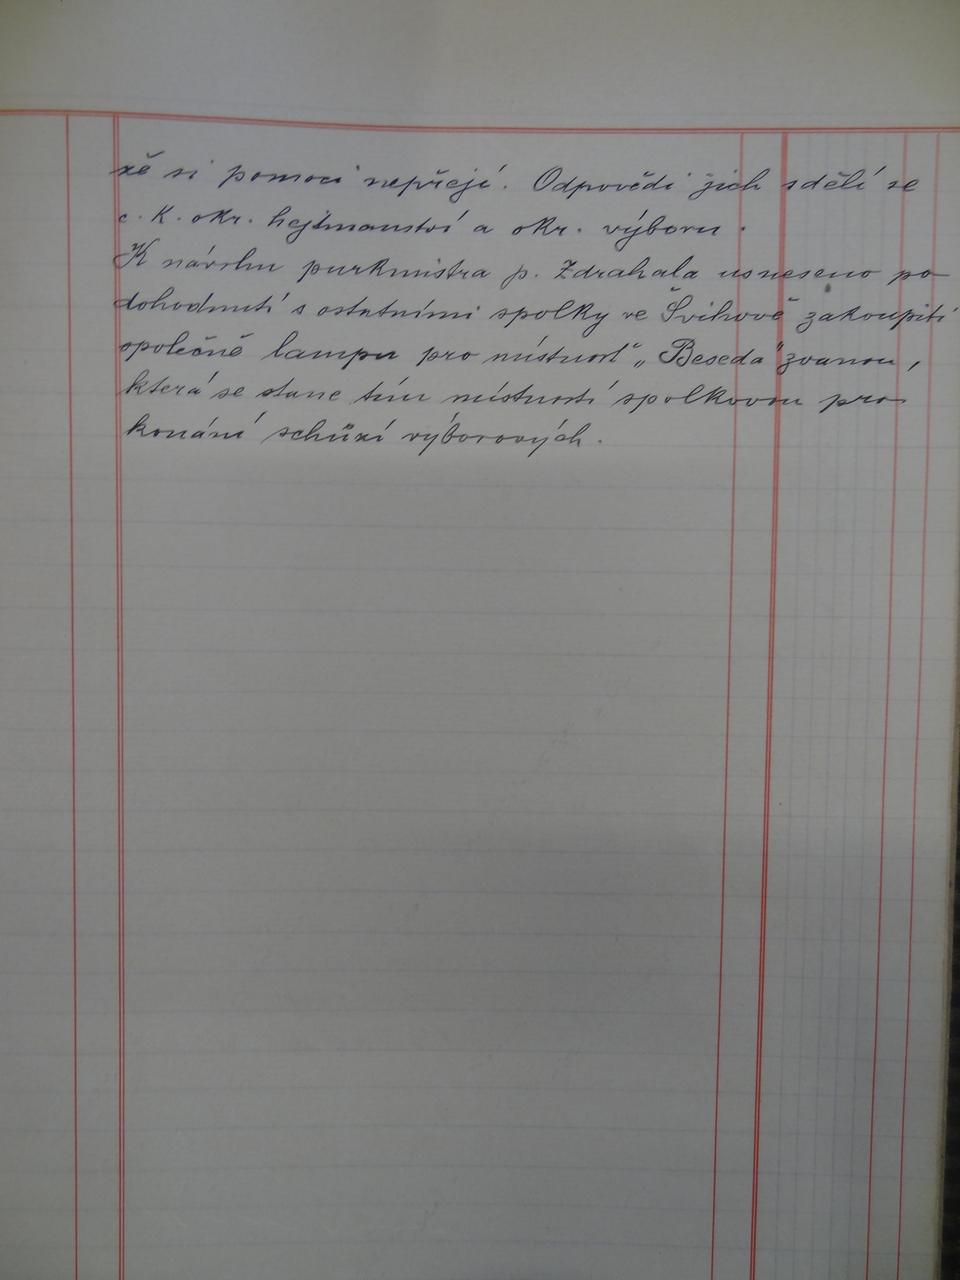 že si pomoci nepřejí. Odpovědi jich sdělí se
c. K. okr. hejtmanství a okr. výboru.
K návrhu purkmistra p. Zdrahala usneseno po
dohodnutí s ostatními spolky ve Švihově zakoupiti
společně lampu pro místnost „Beseda" zvanou,
která se stane tím místností spolkovou pro
konání schůzí výborových.